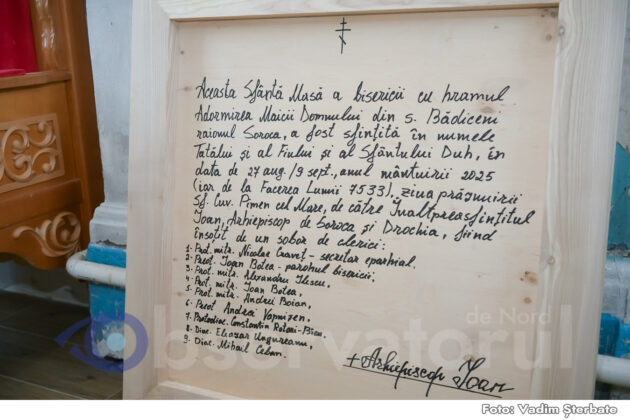 Aceasta Sfântă Masă a bisericii cu hramul
Adormirea Maicii Domnului din s. Bădiceni
raionul Soroca, a fost sfințită în numele
Tatălui și al Fiului și al Sfântului Duh, în
data de 27 aug./9 sept., anul mântuirii 2025
(iar de la Facerea Lumii 7533), ziua prăznuirii
Sf. Cuv. Pimen cel Mare, de către Înaltpreasfințitul
Ioan, Arhiepiscop de Soroca și Drochia, fiind
însoțit de un sobor de clerici:
1. Prot. mitr. Nicolae Craveț - secretar eparhial.
2. Preot. Ioan Botea - parohul bisericii,
3. Prot. mitr. Alexandru Ițescu,
4. Prot. mitr. Ioan Botea,
5. Prot. mitr. Andrei Boian,
6. Preot Andrei
7. Protodiac. Constantin
8. Diac. Eleazar Ungureanu,
9. Diac. Mihail Ceban.
+Arhiepiscop Ioan
Observatorul
de Nord
Foto: Vadim Șterbate